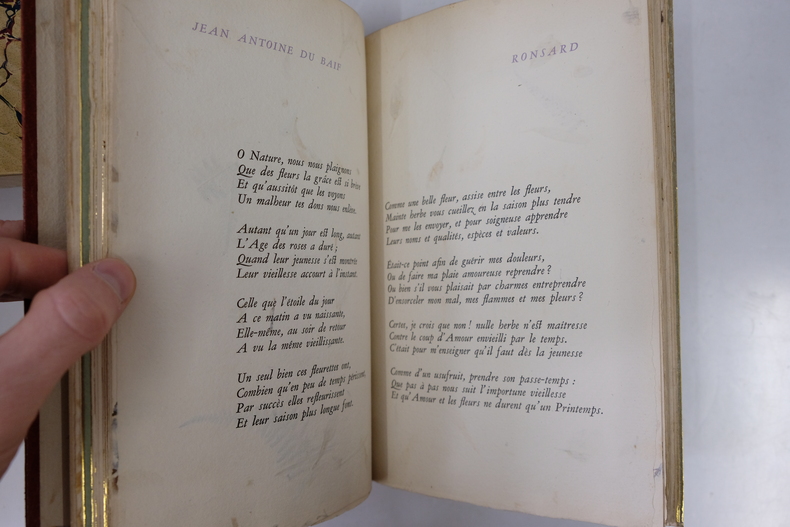 JEAN ANTOINE DU BAIF
O Nature, nous nous plaignons
Que des fleurs la grâce est si brève
Et qu'aussitôt que les voyons
Un malheur tes dons nous enlève.
Autant qu'un jour est long, autant
L'Age des roses a duré ;
Quand leur jeunesse s'est montrée
Leur vieillesse accourt à l'instant.
Celle que l'étoile du jour
A ce matin a vu naissante,
Elle-même, au soir de retour
A vu la même vieillissante.
Un seul bien ces fleurettes ont,
Combien qu'en peu de temps périssent,
Par succès elles refleurissent
Et leur saison plus longue font.
RONSARD
Comme une belle fleur, assise entre les fleurs,
Mainte herbe vous cueillez en la saison plus tendre
Pour me les envoyer, et pour soigneuse apprendre
Leurs noms et qualités, espèces et valeurs.
Etait-ce point afin de guérir mes douleurs,
Ou de faire ma plaie amoureuse reprendre ?
Ou bien s'il vous plaisait par charmes entreprendre
D'ensorceler mon mal, mes flammes et mes pleurs ?
Certes, je crois que non ! nulle herbe n'est maîtresse
Contre le coup d'Amour envieilli par le temps.
C'était pour m'enseigner qu'il faut dès la jeunesse
Comme d'un usufruit, prendre son passe-temps :
Que pas à pas nous suit l'importune vieillesse
Et qu'Amour et les fleurs ne durent qu'un Printemps.